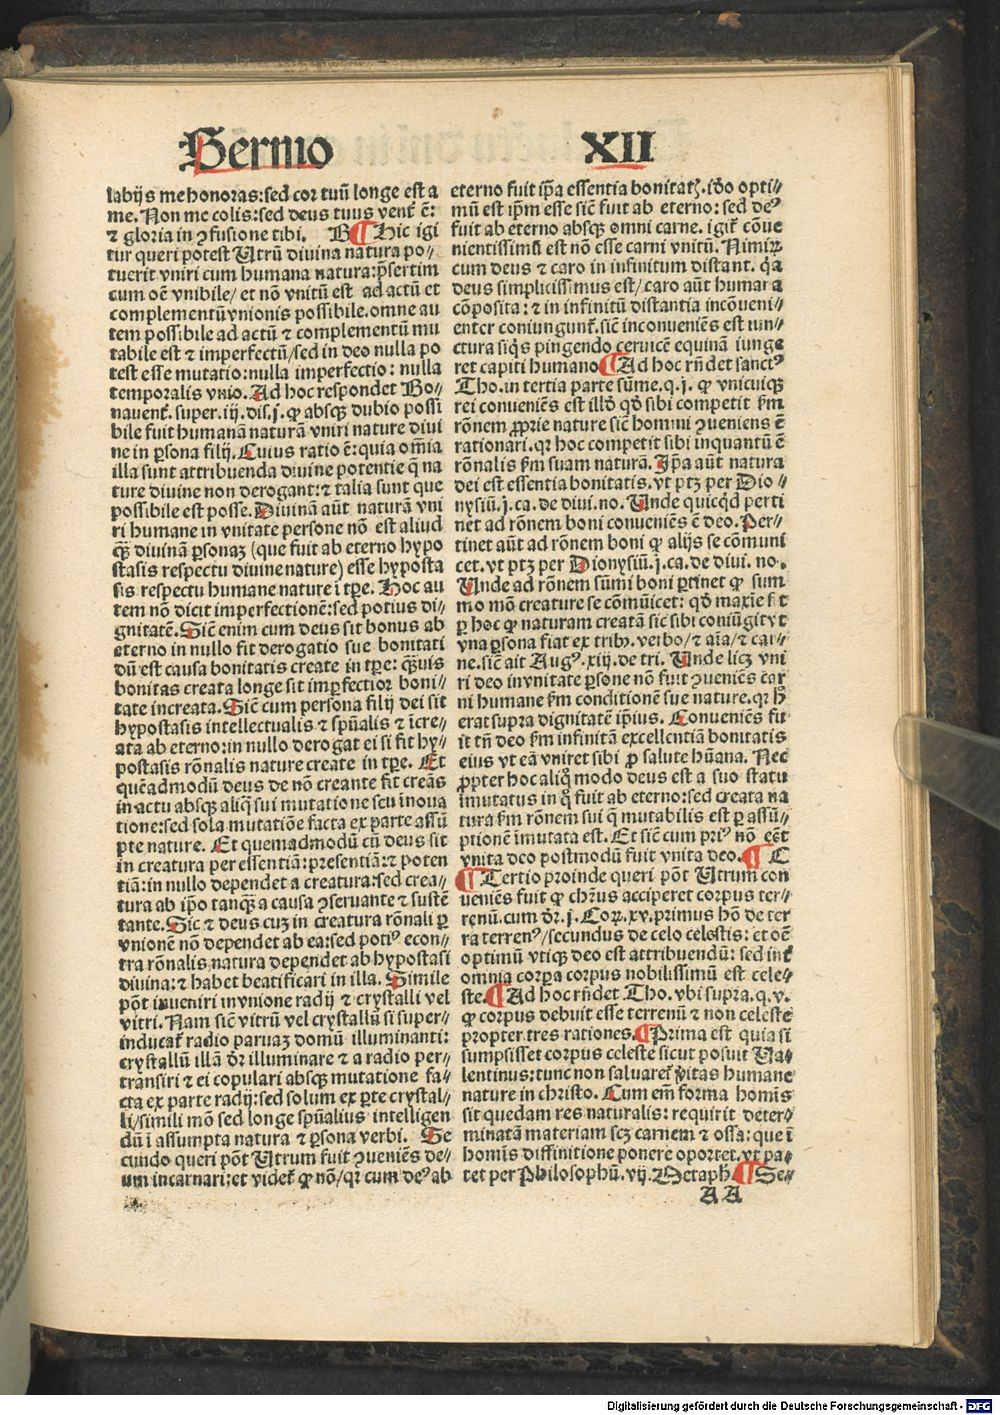 Sermo XII
labijs me honoras: sed cor tuū longe est a
me. Non me colis: sed deus tuus ventʳ ē:
⁊ gloria in ꝯfusione tibi. B ¶ Hic igi
tur queri potest Utrū diuina natura po⸗
tuerit vniri cum humana natura: p̄sertim
cum oē vnibile/ et nō vnitū est ad actū et
complementū vnionis possibile. omne au
tem possibile ad actū ⁊ complementū mu
tabile est ⁊ imperfectū/ sed in deo nulla po
test esse mutatio: nulla imperfectio: nulla
temporalis vnio. Ad hoc respondet Bo⸗
nauentʳ. super. iij. dis. j. ꝙ absqꝫ dubio possi
bile fuit humanā naturā vniri nature diui
ne in ꝑsona filij. Cuius ratio ē: quia om̄ia
illa sunt attribuenda diuine potentie q̄ na
ture diuine non derogant: ⁊ talia sunt que
possibile est posse. Diuinā aūt naturā vni
ri humane in vnitate persone nō est aliud
qꝫ̄ diuinā ꝑsonaꝫ (que fuit ab eterno hypo
stasis respectu diuine nature) esse hyposta
sis respectu humane nature ī tꝑe. Hoc au
tem nō dicit imperfectionē: sed potius di⸗
gnitatē. Sic̄ enim cum deus sit bonus ab
eterno in nullo fit derogatio sue bonitati
dū est causa bonitatis create in tꝑe: qꝫ̄uis
bonitas creata longe sit imꝑfectior boni⸗
tate increata. Sic̄ cum persona filij dei sit
hypostasis intellectualis ⁊ spūalis ⁊ īcre⸗
ata ab eterno: in nullo derogat ei si fit hy⸗
postasis rōnalis nature create in tꝑe. Et
quēadmodū deus de nō creante fit creās
in actu absqꝫ aliq̄ sui mutatione seu īnoua
tione: sed sola mutatiōe facta ex parte assū
pte nature. Et quemadmodū cū deus sit
in creatura per essentiā: presentiā: ⁊ poten
tiā: in nullo dependet a creatura: sed crea⸗
tura ab ip̄o tanqꝫ a causa ꝯseruante ⁊ sustē
tante. Sic ⁊ deus cuꝫ in creatura rōnali ꝑ
vnionē nō dependet ab ea: sed potiꝰ econ⸗
tra rōnalis natura dependet ab hypostasi
diuina: ⁊ habet beatificari in illa. Simile
pōt inueniri in vnione radij ⁊ crystalli vel
vitri. Nam sic̄ vitrū vel crystallū si super⸗
inducatʳ radio paruaꝫ domū illuminanti:
crystallū illā dr̄ illuminare ⁊ a radio per⸗
transiri ⁊ ei copulari absqꝫ mutatione fa⸗
cta ex parte radij: sed solum ex ꝑte crystal⸗
li/ simili mō sed longe spūalius intelligen
dū ī assumpta natura ⁊ ꝑsona verbi. Se
cundo queri pōt Utrum fuit ꝯueniēs de⸗
um incarnari: et videtʳ ꝙ nō/ qꝛ cum deꝰ ab
eterno fuit ip̄a essentia bonitatꝭ. iō opti⸗
mū est ip̄m esse sic̄ fuit ab eterno: sed deꝰ
fuit ab eterno absqꝫ omni carne. igitʳ cōue
nientissimū est nō esse carni vnitū. Nimirꝝ
cum deus ⁊ caro in infinitum distant. q̄a
deus simplicissimus est/ caro aūt humana
cōposita: ⁊ in infinitū distantia incōueni⸗
enter coniungunt. sic̄ inconueniēs est iun⸗
ctura siq̄s pingendo ceruicē equinā iunge
ret capiti humano ¶ Ad hoc rn̄det sanctꝰ
Tho. in tertia parte sūme. q. j. ꝙ vnicuiqꝫ
rei conueniēs est illd̄ qd̄ sibi competit ẜm
rōnem ꝓprie nature sic̄ homini ꝯueniens ē
rationari. qꝛ hoc competit sibi inquantū ē
rōnalis ẜm suam naturā. Ip̄a aūt natura
dei est essentia bonitatis. vt ptꝫ per Dio⸗
nysiū. j. ca. de diui. no. Unde quicqd̄ perti
net ad rōnem boni conueniēs ē deo. Per⸗
tinet aūt ad rōnem boni ꝙ alijs se cōmuni
cet. vt ptꝫ per Dionysiū. j. ca. de diui. no.
Unde ad rōnem sūmi boni ꝑtinet ꝙ sum
mo mō creature se cōmūicet: qd̄ maxīe fit
ꝑ hoc ꝙ naturam creatā sic sibi coniūgit vt
vna ꝑsona fiat ex tribꝰ. verbo/ ⁊ aīa/ ⁊ car⸗
ne. sic̄ ait Augꝰ. xiij. de tri. Unde licꝫ vni
ri deo in vnitate ꝑsone nō fuit ꝯueniēs car
ni humane ẜm conditionē sue nature. qꝛ h̄
erat supra dignitatē ip̄ius. Conueniēs fu
it tn̄ deo ẜm infinitā excellentiā bonitatis
eius vt eā vniret sibi ꝓ salute hūana. Nec
ꝓpter hoc aliq̊ modo deus est a suo statu
īmutatus in q̊ fuit ab eterno: sed creata na
tura ẜm rōnem sui q̄ mutabilis est ꝑ assū⸗
ptionē īmutata est. Et sic̄ cum priꝰ nō eēt
vnita deo postmodū fuit vnita deo. ¶ C
¶ Tertio proinde queri pōt Utrum con
ueniēs fuit ꝙ chr̄us acciperet corpus ter⸗
renū. cum dr̄. j. Coꝝ. xv. primus hō de ter
ra terrenꝰ/ secundus de celo celestis: et oē
optimū vtiqꝫ deo est attribuendū: sed intʳ
omnia corpa corpus nobilissimū est cele⸗
ste. ¶ Ad hoc rn̄det Tho. vbi supra. q. v.
ꝙ corpus debuit esse terrenū ⁊ non celeste
propter tres rationes. ¶ Prima est quia si
sumpsisset corpus celeste sicut posuit Ua⸗
lentinus: tunc non saluaretʳ v̓itas humane
nature in christo. Cum em̄ forma homīs
sit quedam res naturalis: requirit deter⸗
minatā materiam scꝫ carnem ⁊ ossa: que ī
homīs diffinitione ponere oportet. vt pa⸗
tet per Philosophū. vij. Metaph. ¶ Se⸗
A A
Digitalisierung gefördert durch die Deutsche Forschungsgemeinschaft - DFG